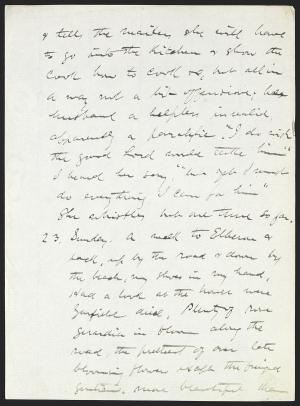 & tells the waiter she will have
to go into the kitchen & show the
cook how to cook so, but all in
a way not a bit offensive; her
husband a helpless invalid
apparently a paralytic. "I do wish
the good Lord would take him"
I heard her say, "but yet I would
do everything I can for him"
She whistles but one tune so far.
23. Sunday. A walk to Elberon &
back, up by the road & down by
the beach, my shoes in my hand,
Had a look at the house where
Garfield died, Plenty of
Gerardia in bloom along the
road, the prettiest of our late
blooming flowers except the fringed
gentian, more beautiful than